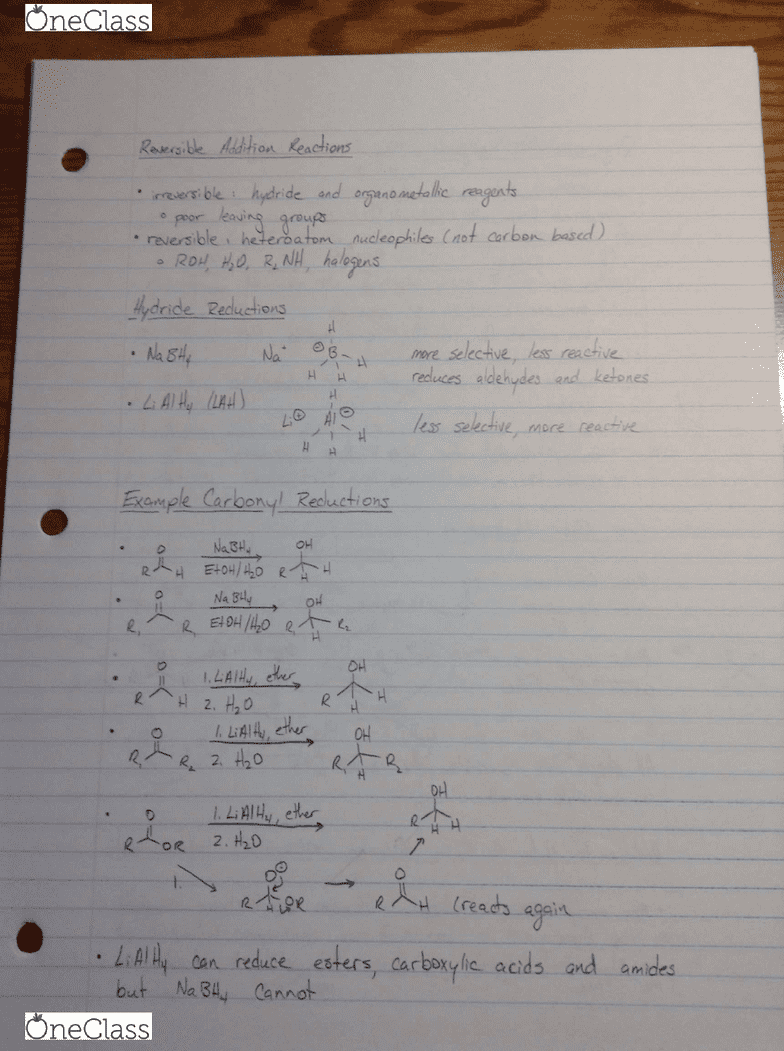 OneClass
Reversible Addition Reactions
• irreversible : hydride and organometallic reagents
∘ poor leaving groups
• reversible : heteroatom nucleophiles (not carbon based)
∘ ROH, H₂O, R₂NH, halogens
Hydride Reductions
H
• NaBH₄ Na⁺ ⊖B H more selective, less reactive
H H reduces aldehydes and ketones
H
• LiAlH₄ (LAH) Li⊕ Al⊖ H less selective, more reactive
H H
Example Carbonyl Reductions
• O NaBH₄ OH
R H EtOH/H₂O R H H
• O NaBH₄ OH
R₁ R EtOH/H₂O R₁ H R₂
• O 1. LiAlH₄, ether OH
R H 2. H₂O R H H
• O 1. LiAlH₄, ether OH
R₁ R₂ 2. H₂O R₁ H R₂
OH
• O 1. LiAlH₄, ether R H H
R OR 2. H₂O
1. O⊖ O
R H OR R H (reacts again
• LiAlH₄ can reduce esters, carboxylic acids and amides
but NaBH₄ cannot
OneClass